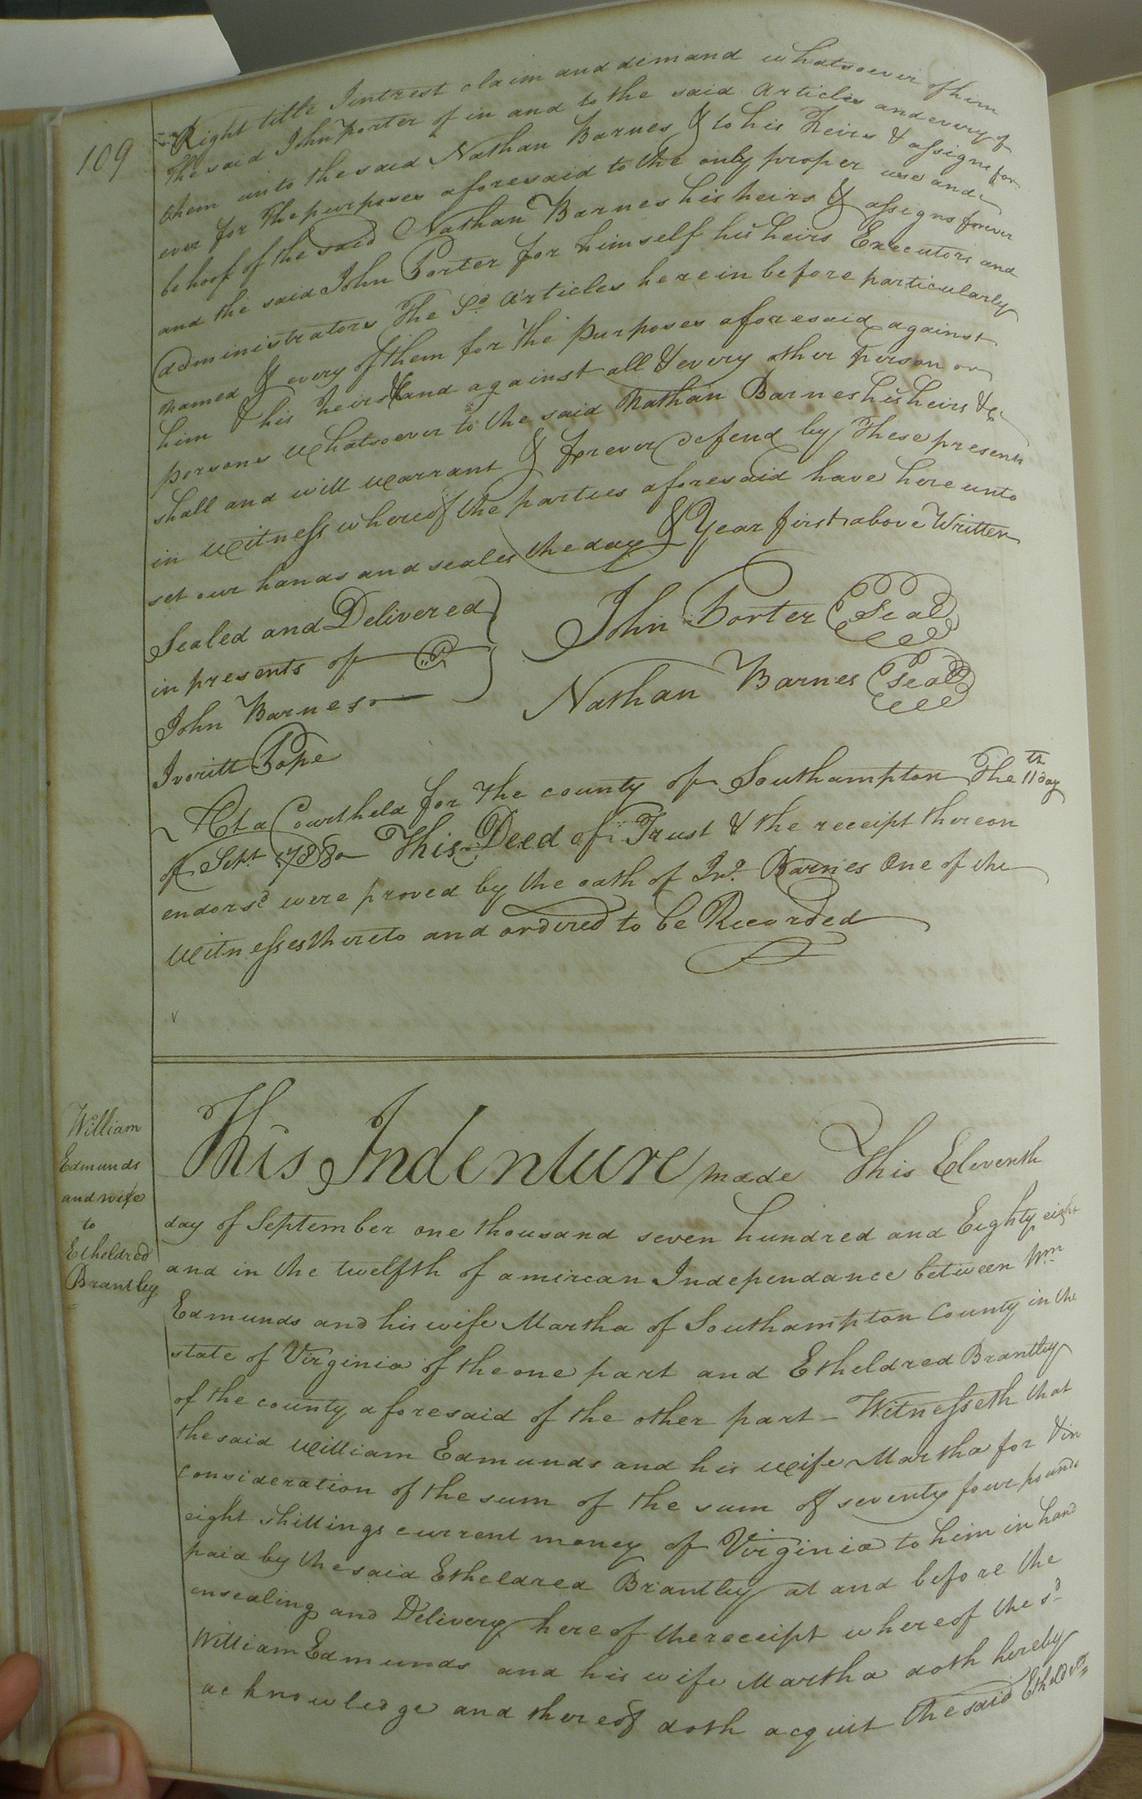 109
Right title Intrest claim and demand whatsoever of him
the said John Porter of in and to the said articles and every of
them unto the said Nathan Barnes & to his heirs & assigns for
ever for the purposes aforesaid to the only proper use and
behoof of the said Nathan Barnes his heirs & assigns forever
and the said John Porter for himself his heirs Executors and
administrators The Sd. articles herein before particularly
named & every of them for the purposes aforesaid against
him & his heirs & and against all & every other person or
persons whatsoever to the said Nathan Barnes his heirs &c
shall and will warrant & forever defend by these presents
in witness whereof the parties aforesaid have here unto
set our hands and seales the day & Year first above Written
Sealed and Delivered John Porter (Seal)
in presents of
John Barnes Nathan Barnes (Seal)
Iveritt Pope
At a Court held for the county of Southampton The 11th day
of Sept. 1788 This Deed of Trust & the receipt thereon
endorsd were proved by the oath of Jno. Barnes One of the
witnesses thereto and ordered to be Recorded
William
Edmunds
and wife
to
Etheldred
Brantley
This Indenture made This Eleventh
day of September one thousand seven hundred and Eighty eight
and in the twelfth of amirean Independance between Wm
Edmunds and his wife Martha of Southampton County in the
state of Virginia of the one part and Etheldred Brantley
of the county aforesaid of the other part - Witnesseth that
the said William Edmunds and his wife Martha for & in
consideration of the sum of the sum of seventy four pounds
eight shillings current money of Virginia to him in hand
paid by the said Etheldred Brantley at and before the
ensealing and Delivery here of the receipt whereof the sd.
William Edmunds and his wife Martha doth hereby
acknowledge and thereof doth acquit the said